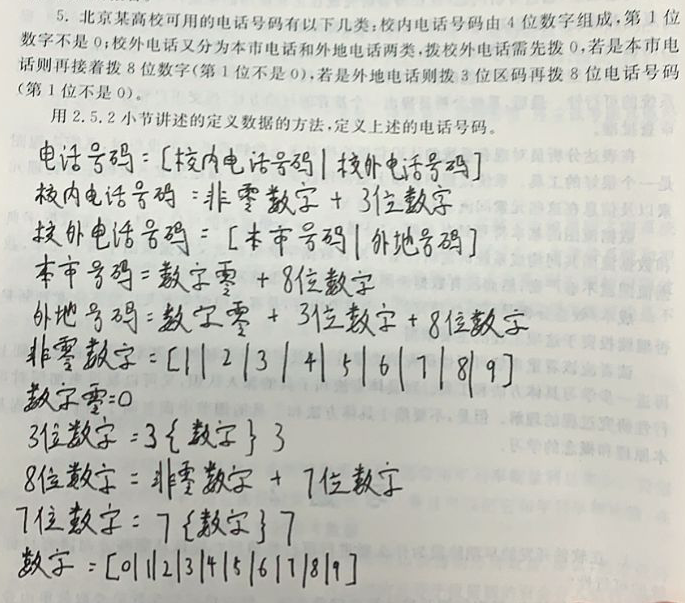 5. 北京某高校可用的电话号码有以下几类:校内电话号码由4位数字组成,第1位
数字不是0;校外电话又分为本市电话和外地电话两类,拨校外电话需先拨0,若是本市电
话则再接着拨8位数字(第1位不是0),若是外地电话则拨3位区码再拨8位电话号码
(第1位不是0)。
用2.5.2小节讲述的定义数据的方法,定义上述的电话号码。
电话号码=[校内电话号码|校外电话号码]
校内电话号码=非零数字+3位数字
校外电话号码=[本市号码|外地号码]
本市号码=数字零+8位数字
外地号码=数字零+3位数字+8位数字
非零数字=[1|2|3|4|5|6|7|8|9]
数字零=0
3位数字=3{数字}3
8位数字=非零数字+7位数字
7位数字=7{数字}7
数字=[0|1|2|3|4|5|6|7|8|9]